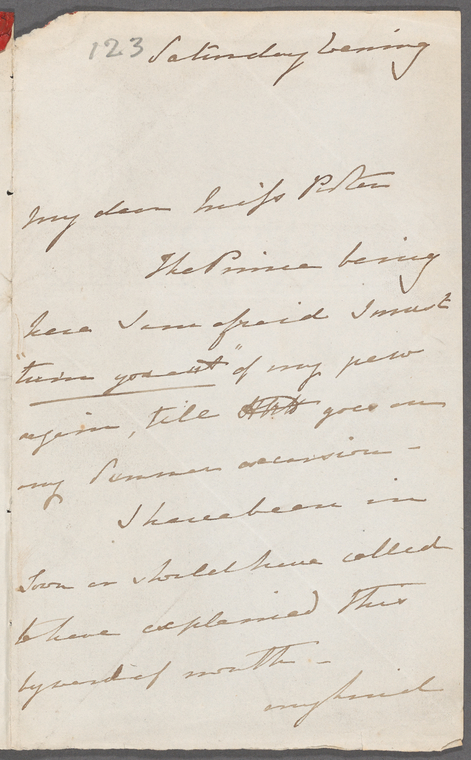 123 Saturday Evening
My dear Miss Porter
The Prince being
here I am afraid I must
"turn you out" of my pew
again, till HRH goes on
my Summer excursion -
I have been in
Town or should have called
to have explained this
by word of mouth -
my kind